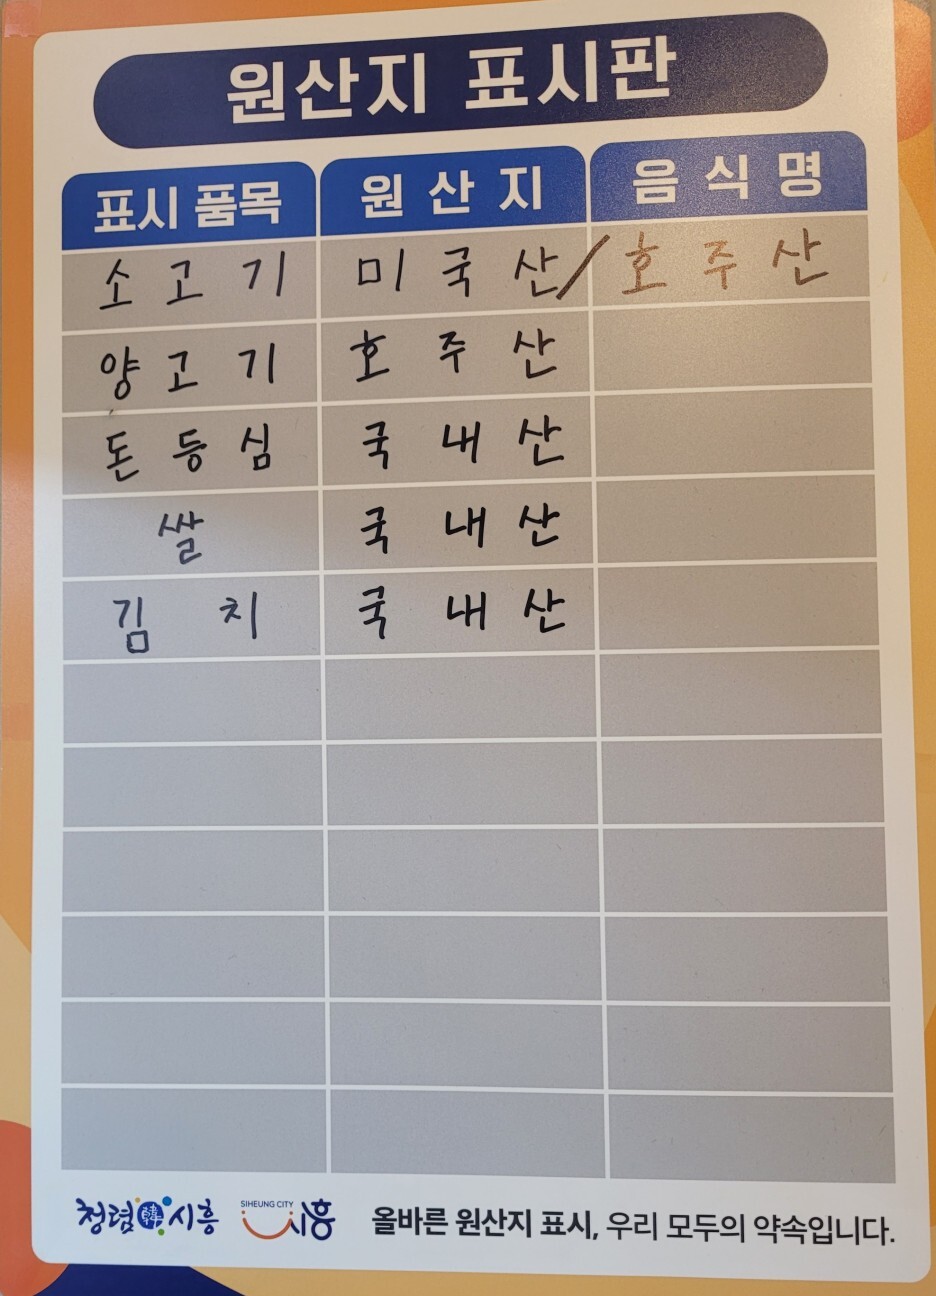 원산지 표시판
표시 품목 원 산 지 음 식 명
소 고 기 미 국 산 / 호 주 산
양 고 기 호 주 산
돈 등 심 국 내 산
쌀 국 내 산
김 치 국 내 산
청렴 韓 시흥 SIHEUNG CITY 시흥 올바른 원산지 표시, 우리 모두의 약속입니다.